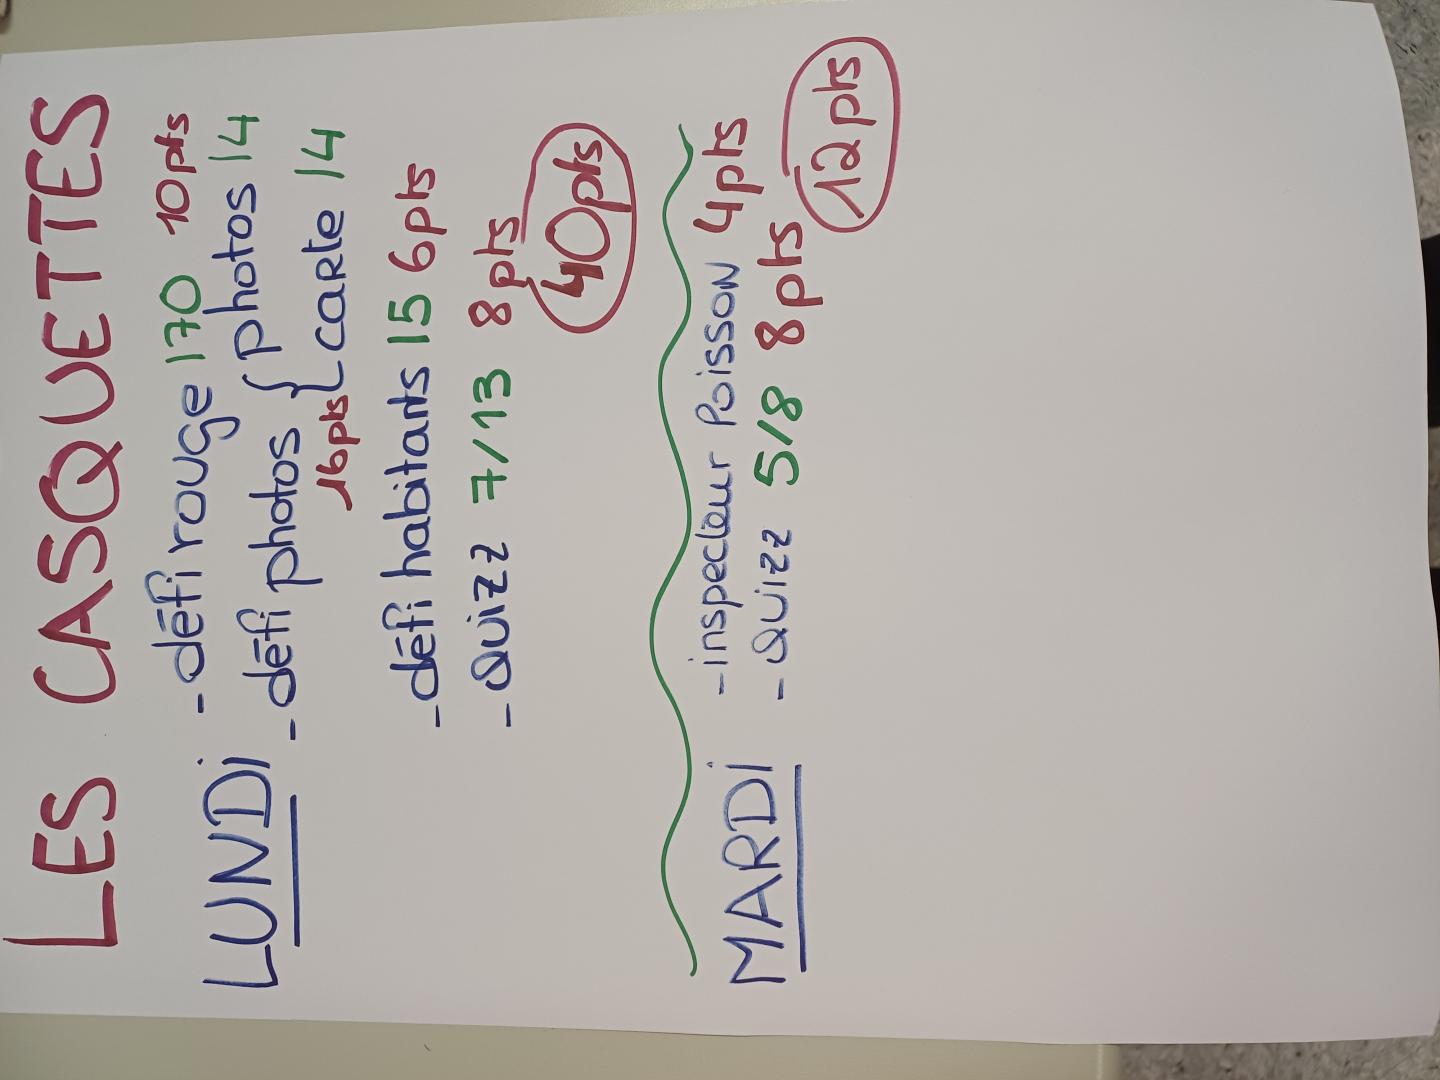 LES CASQUETTES
LUNDi
- défi rouge 170 10pts
- défi photos { photos 14
16pts { carte 14
- défi habitants 15 6pts
- Quizz 7/13 8pts
40pts
MARDi
- inspecteur Poisson 4pts
- Quizz 5/8 8pts
12pts